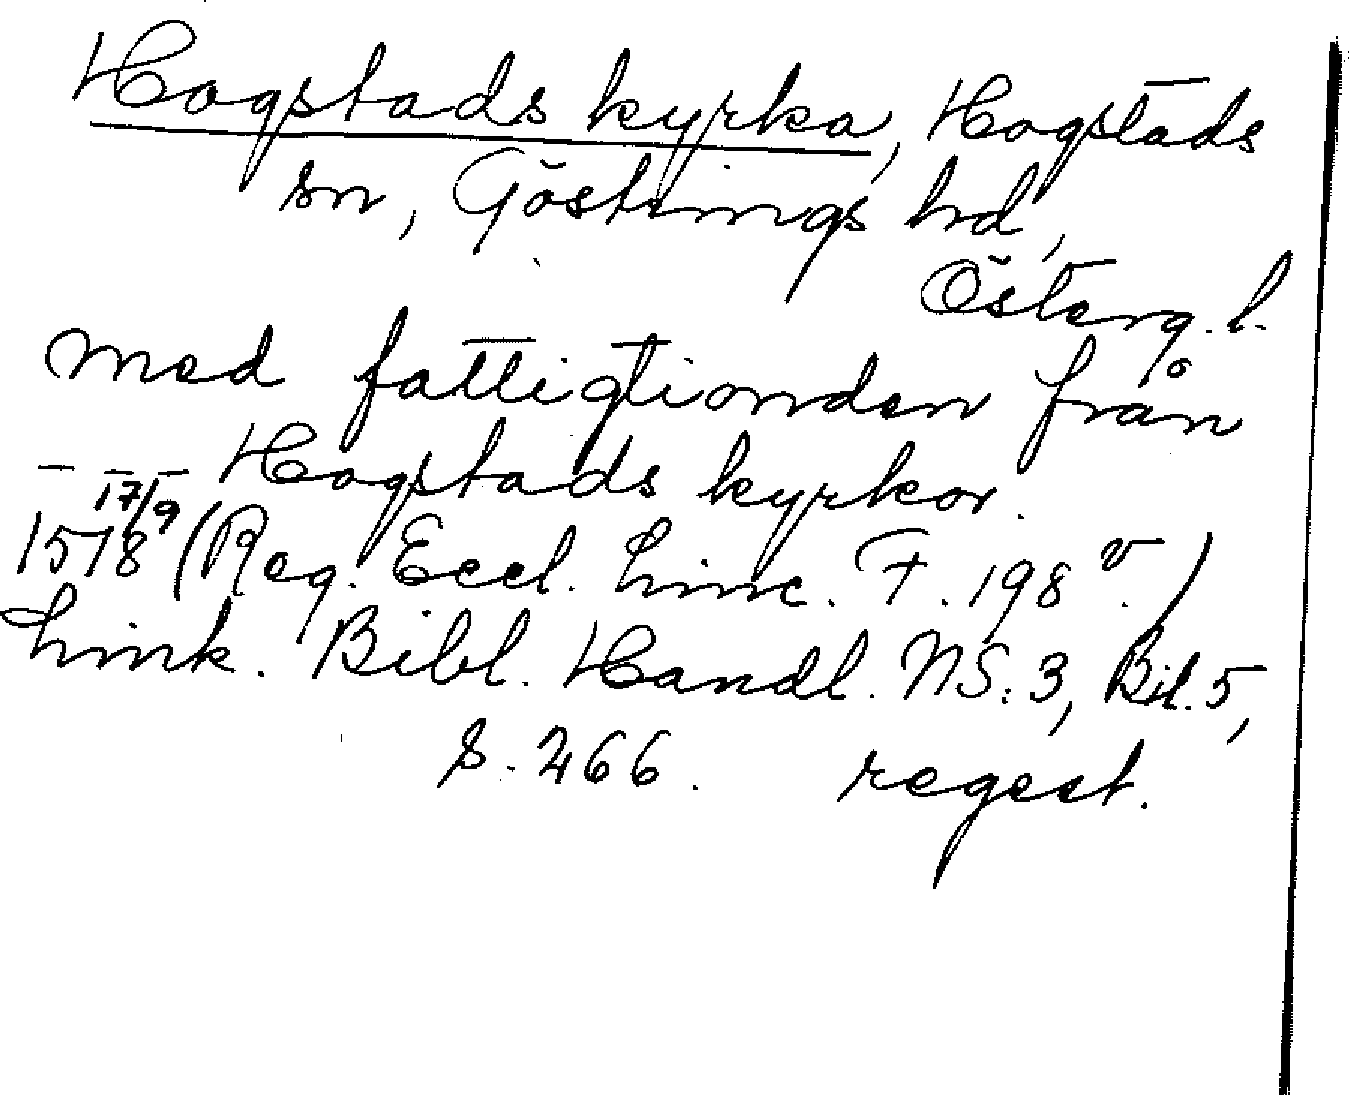 Hogstads kyrka, Hogstads
sn, Göstrings hrd,
Österg. l.
med fattigtionden från
Hogstads kyrkor.
— — — 17/9
1518 (Reg. Eccl. Linc. F. 198 v.)
Link. Bibl. Handl. NS: 3, Bil. 5,
s. 266. regest.